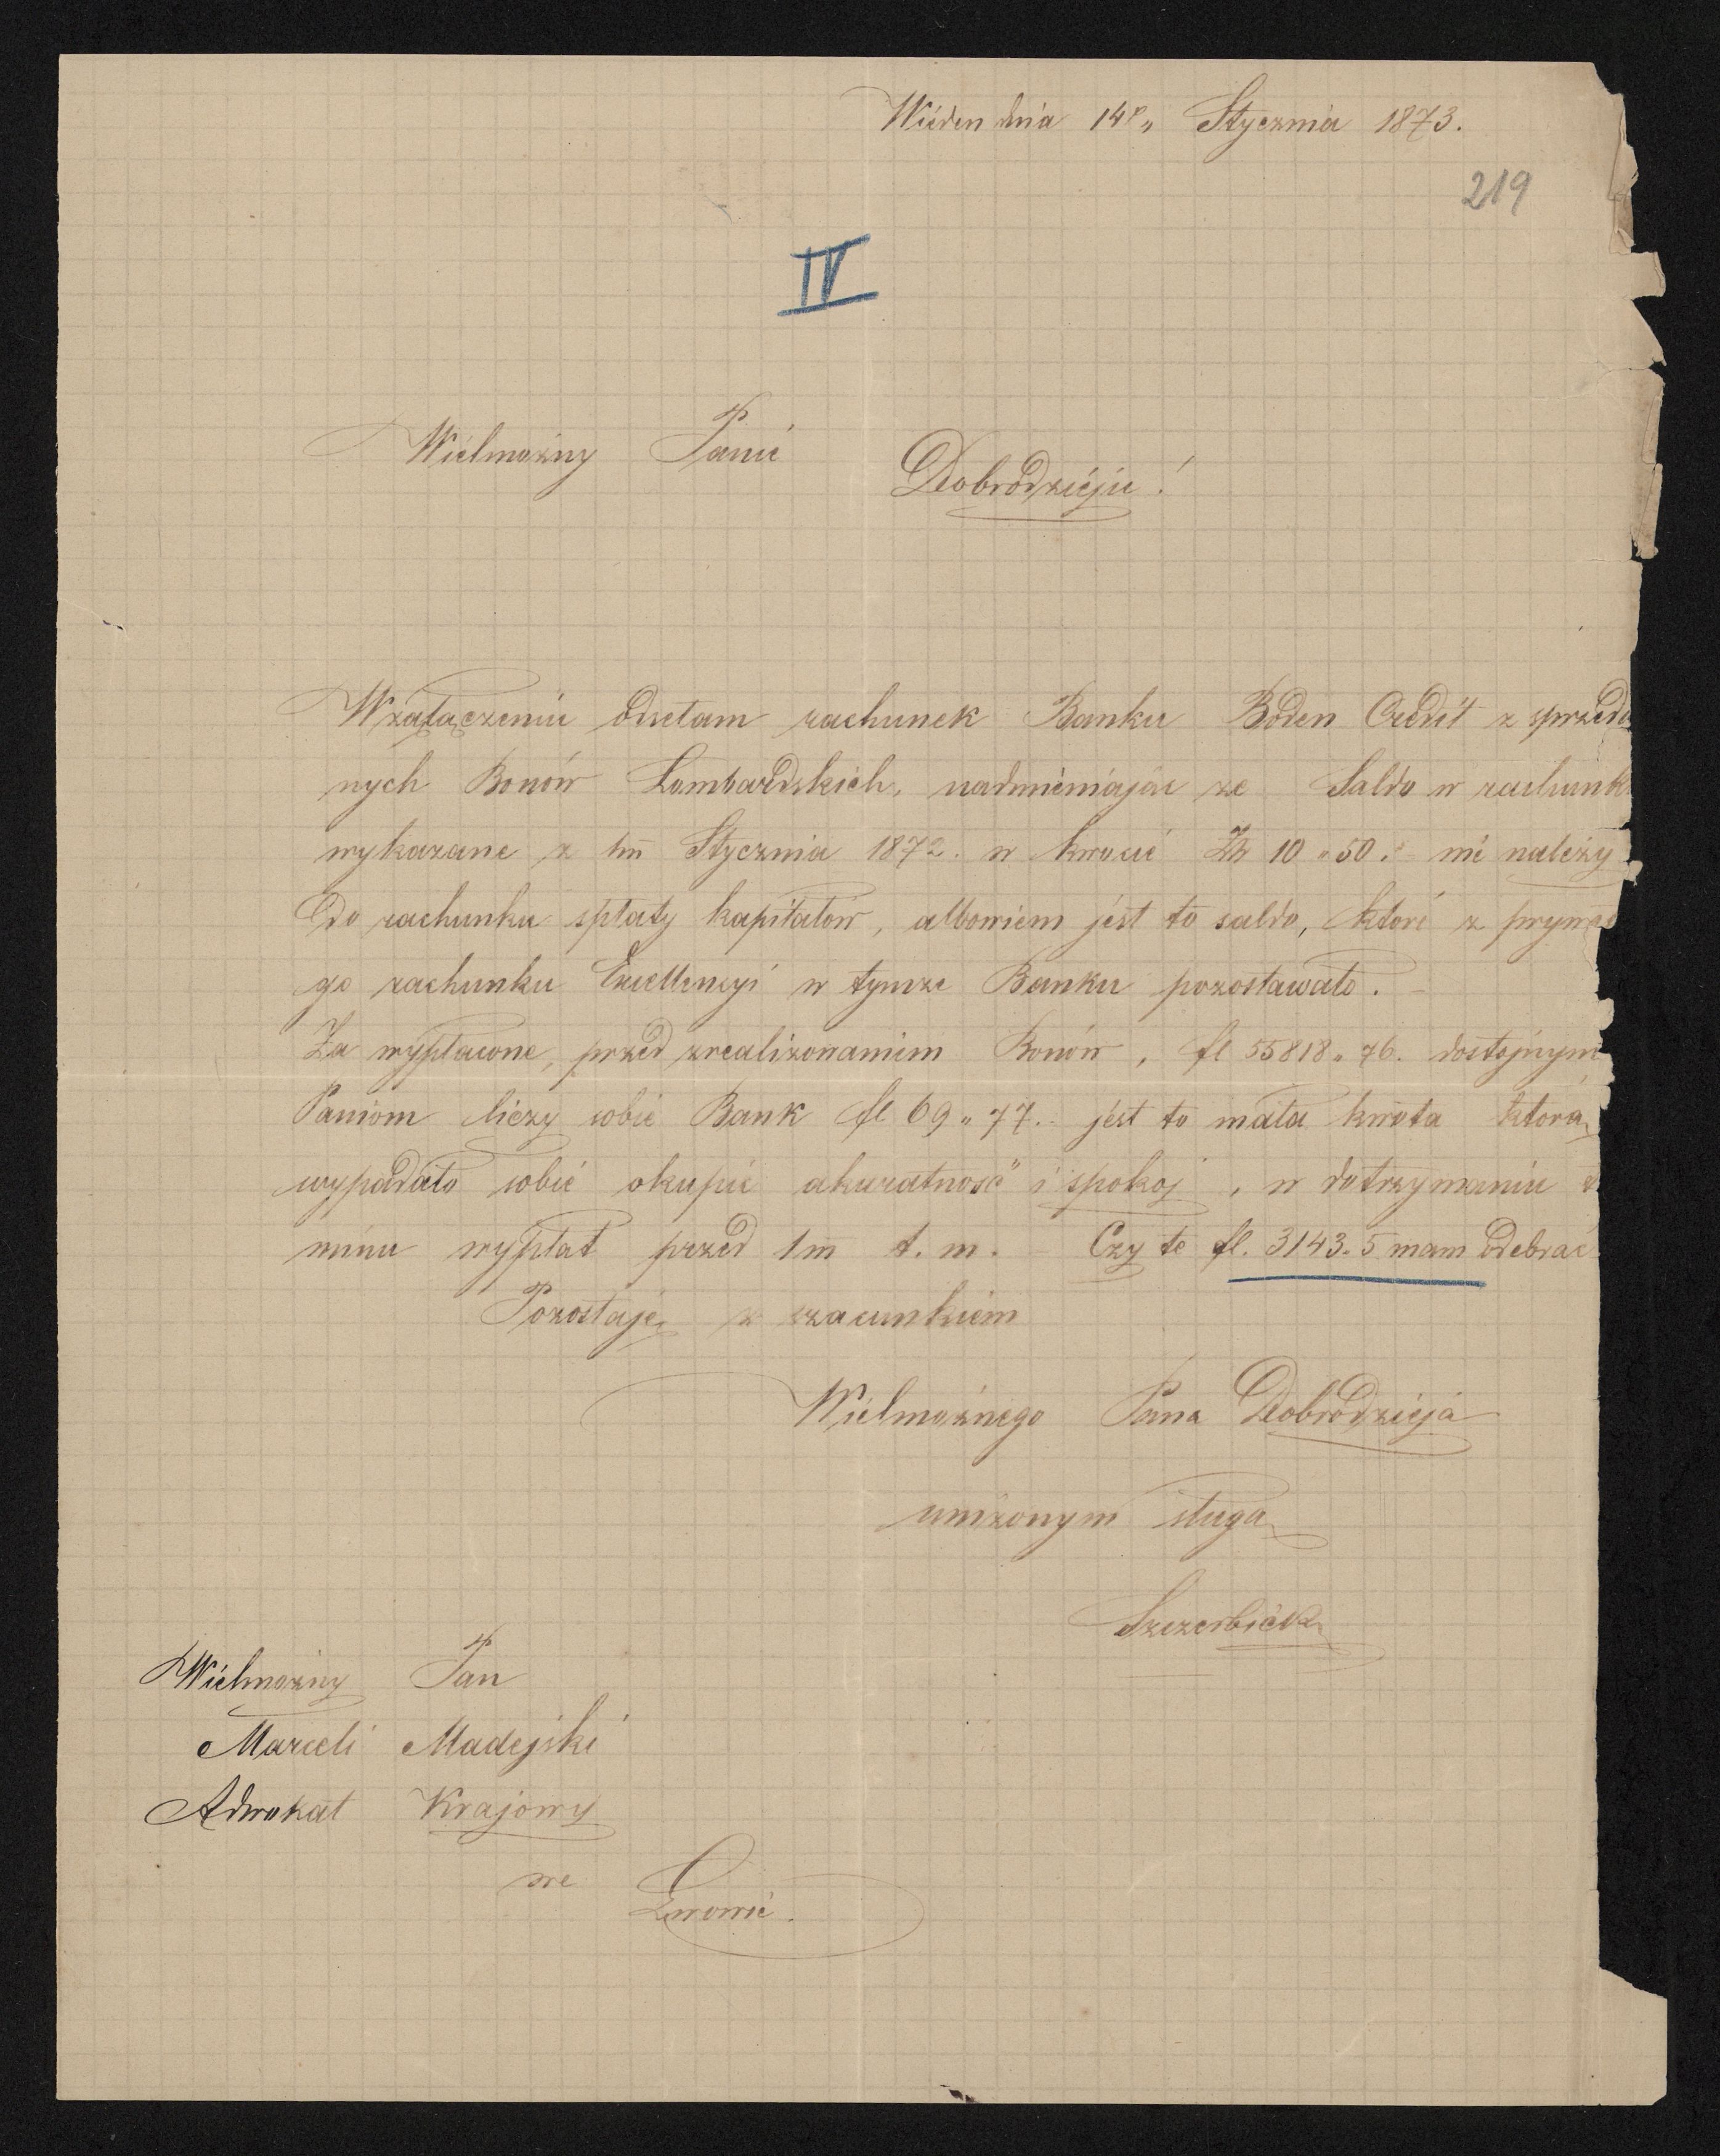 Wiedeń dnia 14go Stycznia 1873.
219
IV
Wielmożny Panie
Dobrodzieju!
W załączeniu odsełam rachunek Banku Boden Credit z sprzeda
nych Bonów Lombardskich, nadmieniając ze Saldo w rachunk
wykazane z Stycznia 1872. w kwocie 10 „ 50. nie należy
do rachunku spłaty kapitałów, albowiem jest to saldo, które z prywa
go rachunku Excellencyi w tymze Banku pozostawało.
Za wypłacone, przed zrealizowaniem Bonów, fl 55818 „ 76. dostojnym
Paniom liczy sobie Bank fl 69 „ 77. jest to mała kwota którą
wypadało sobie okupić akuratność i spokoj, w dotrzymaniu
minu wypłat przed 1m t. m. Czy te fl. 3143. 5 mam odebrać
Pozostaję z szacunkiem
Wielmożnego Pana Dobrodzieja
uniżonym sługą
Wielmożny Pan
Marceli Madejski
Adwokat Krajowy
we Lwowie.